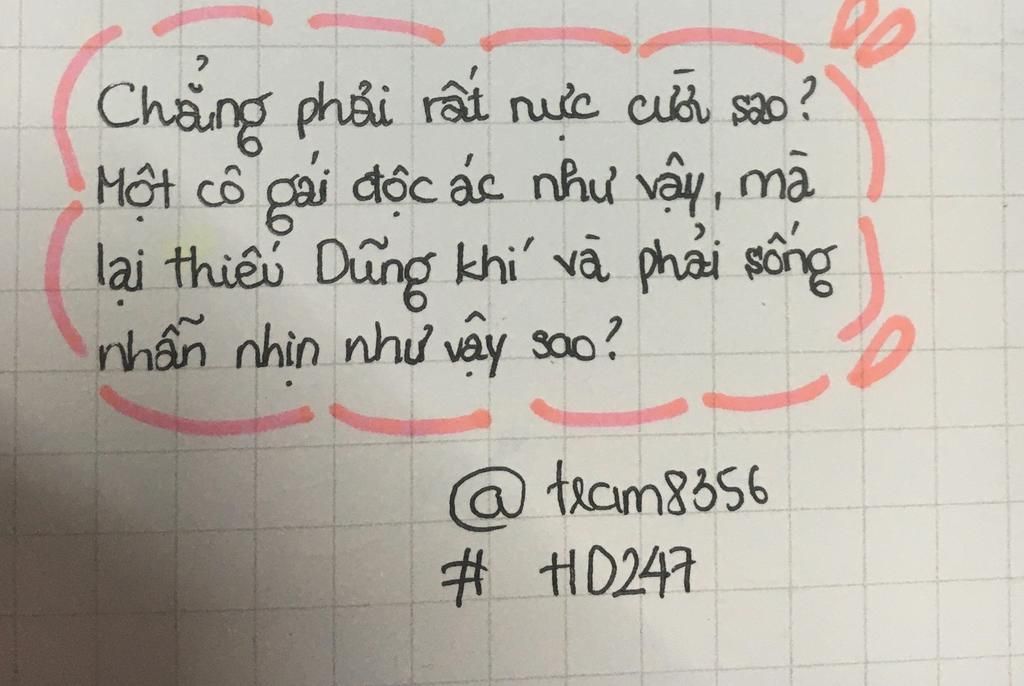 Chẳng phải rất nực cười sao?
Một cô gái độc ác như vậy, mà
lại thiếu Dũng khí và phải sống
nhẫn nhịn như vậy sao?
@team8356
# HD247